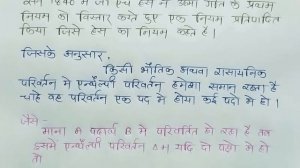 सन् 1840 में जी एच हेस ने ऊष्मा गति के प्रथम
नियम का विस्तार करते हुए एक नियम प्रतिपादित
किया जिसे हेस का नियम कहते है।
जिसके अनुसार,
किसी भौतिक अथवा रासायनिक
परिवर्तन में एन्थैल्पी परिवर्तन हमेशा समान रहता है
चाहे वह परिवर्तन एक पद में हो या कई पदो में हो।
जैसे -
माना A पदार्थ B में परिवर्तित हो रहा है तब
इसमें एन्थैल्पी परिवर्तन ΔH यदि दो पदो में हो
तो